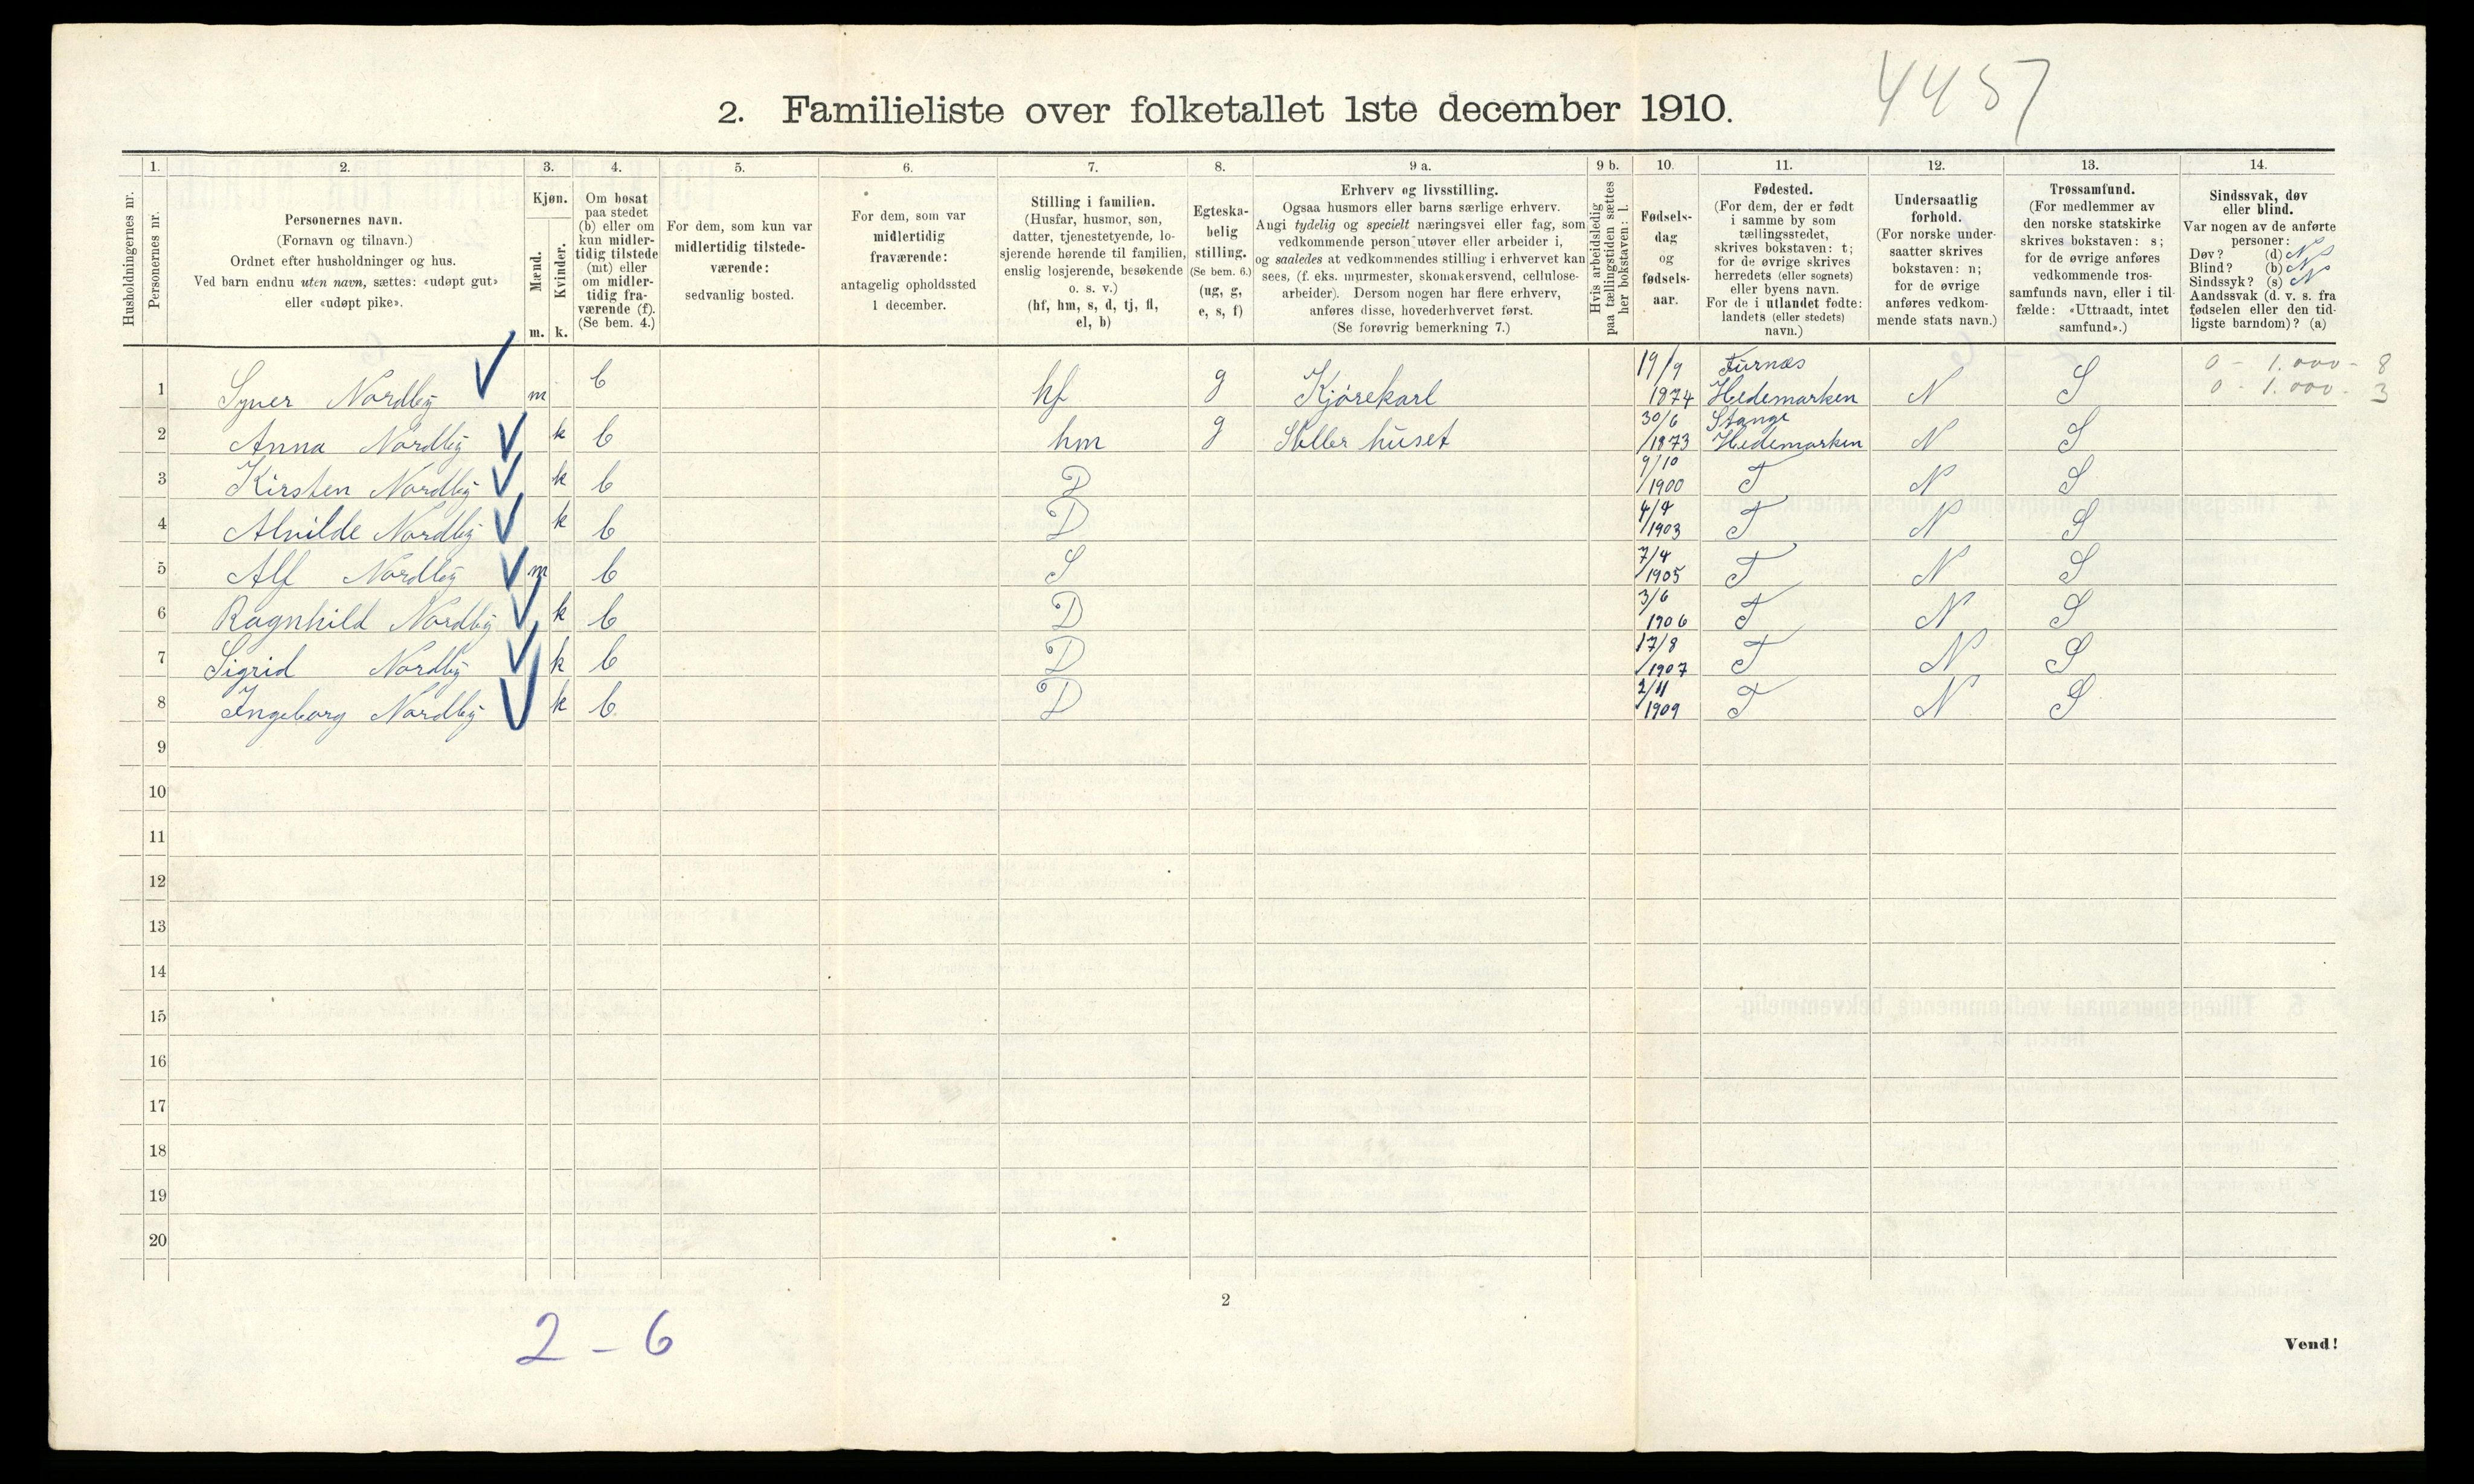 4457
2. Familieliste over folketallet 1ste december 1910.
1. 2. 3. 4. 5. 6. 7. 8. 9 a. 9 b. 10. 11. 12. 13. 14.
Husholdningernes nr.
Personernes nr.
Personernes navn.
(Fornavn og tilnavn.)
Ordnet efter husholdninger og hus.
Ved barn endnu uten navn, sættes: «udøpt gut»
eller «udøpt pike».
Kjøn.
Mænd.
Kvinder.
m. k.
Om bosat
paa stedet
(b) eller om
kun midler-
tidig tilstede
(mt) eller
om midler-
tidig fra-
værende (f).
(Se bem. 4.)
For dem, som kun var
midlertidig tilstede-
værende:
sedvanlig bosted.
For dem, som var
midlertidig
fraværende:
antagelig opholdssted
1 december.
Stilling i familien.
(Husfar, husmor, søn,
datter, tjenestetyende, lo-
sjerende hørende til familien,
enslig losjerende, besøkende
o. s. v.)
(hf, hm, s, d, tj, fl,
el, b)
Egteska-
belig
stilling.
(Se bem. 6.)
(ug, g,
e, s, f)
Erhverv og livsstilling.
Ogsaa husmors eller barns særlige erhverv.
Angi tydelig og specielt næringsvei eller fag, som
vedkommende person utøver eller arbeider i,
og saaledes at vedkommendes stilling i erhvervet kan
sees, (f. eks. murmester, skomakersvend, cellulose-
arbeider). Dersom nogen har flere erhverv,
anføres disse, hovederhvervet først.
(Se forøvrig bemerkning 7.)
Hvis arbeidsledig
paa tællingstiden sættes
her bokstaven: l.
Fødsels-
dag
og
fødsels-
aar.
Fødested.
(For dem, der er født
i samme by som
tællingsstedet,
skrives bokstaven: t;
for de øvrige skrives
herredets (eller sognets)
eller byens navn.
For de i utlandet fødte:
landets (eller stedets)
navn.)
Undersaatlig
forhold.
(For norske under-
saatter skrives
bokstaven: n;
for de øvrige
anføres vedkom-
mende stats navn.)
Trossamfund.
(For medlemmer av
den norske statskirke
skrives bokstaven: s;
for de øvrige anføres
vedkommende tros-
samfunds navn, eller i til-
fælde: «Uttraadt, intet
samfund».)
Sindssvak, døv
eller blind.
Var nogen av de anførte
personer:
Døv? (d) N
Blind? (b) N
Sindssyk? (s) N
Aandssvak (d. v. s. fra
fødselen eller den tid-
ligste barndom)? (a)
1 Syver Nordby m b hf g Kjørekarl 19/9 1874 Furnæs Hedemarken N S 0 - 1.000 - 8
0 - 1.000 - 3
2 Anna Nordby k b hm g Steller huset 30/6 1873 Stange Hedemarken N S
3 Kirsten Nordby k b D 9/10 1900 T N S
4 Alvilde Nordby k b D 4/4 1903 T N S
5 Alf Nordby m b S 7/4 1905 T N S
6 Ragnhild Nordby k b D 3/6 1906 T N S
7 Sigrid Nordby k b D 17/8 1907 T N S
8 Ingeborg Nordby k b D 2/11 1909 T N S
9
10
11
12
13
14
15
16
17
18
19
20
2
2 - 6
Vend!